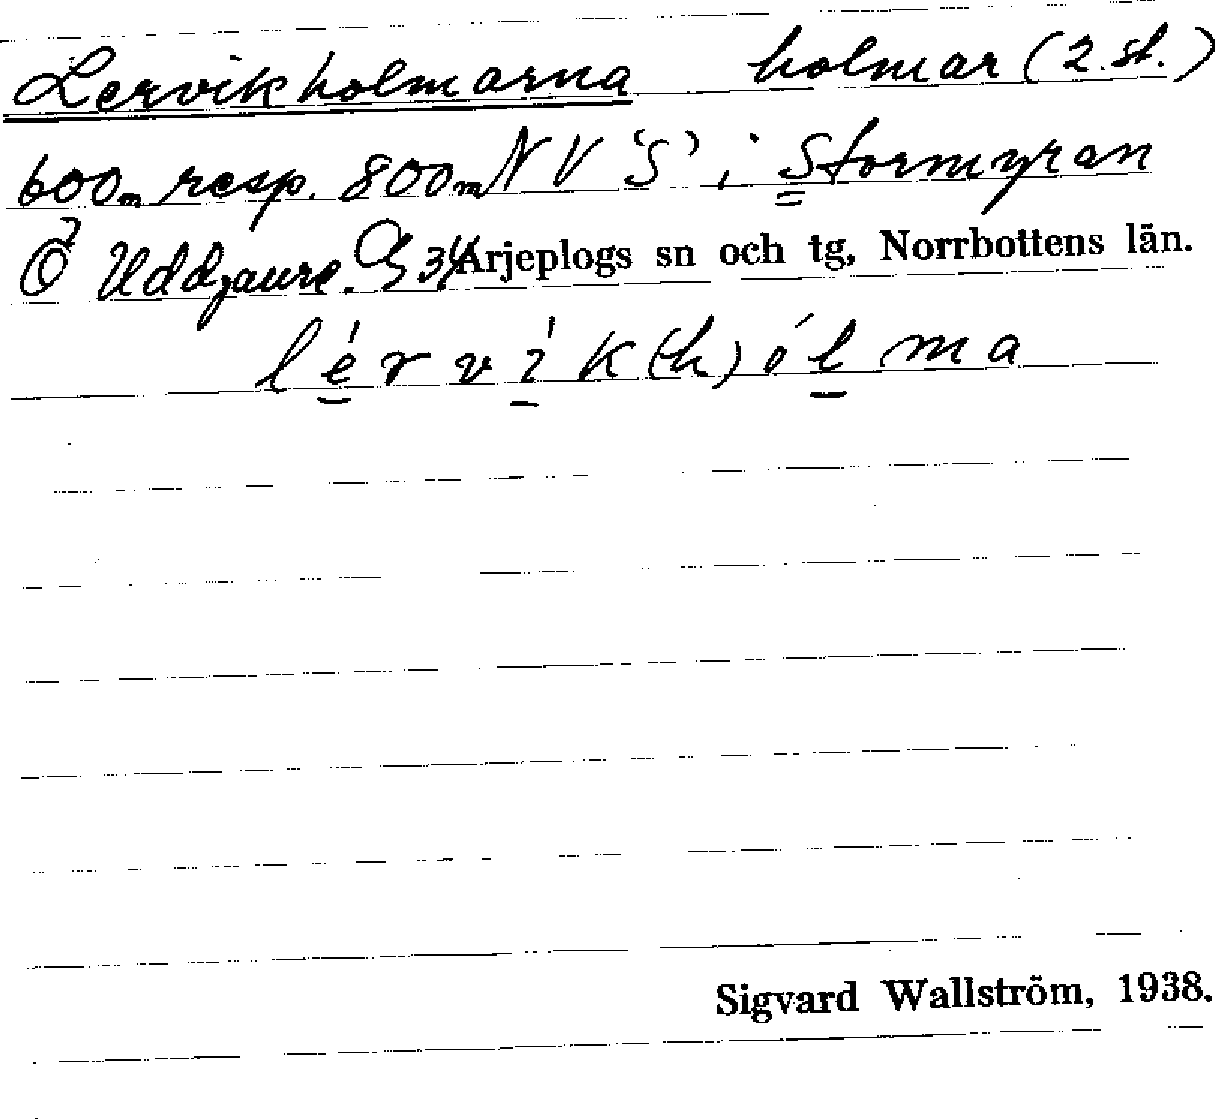 Lervikholmarna holmar (2 st.)
600m resp. 800m NV 'S' i Stormyran
Ö Uddjaure. Arjeplogs sn och tg, Norrbottens län.
lérvìk(h)ólma
Sigvard Wallström, 1938.